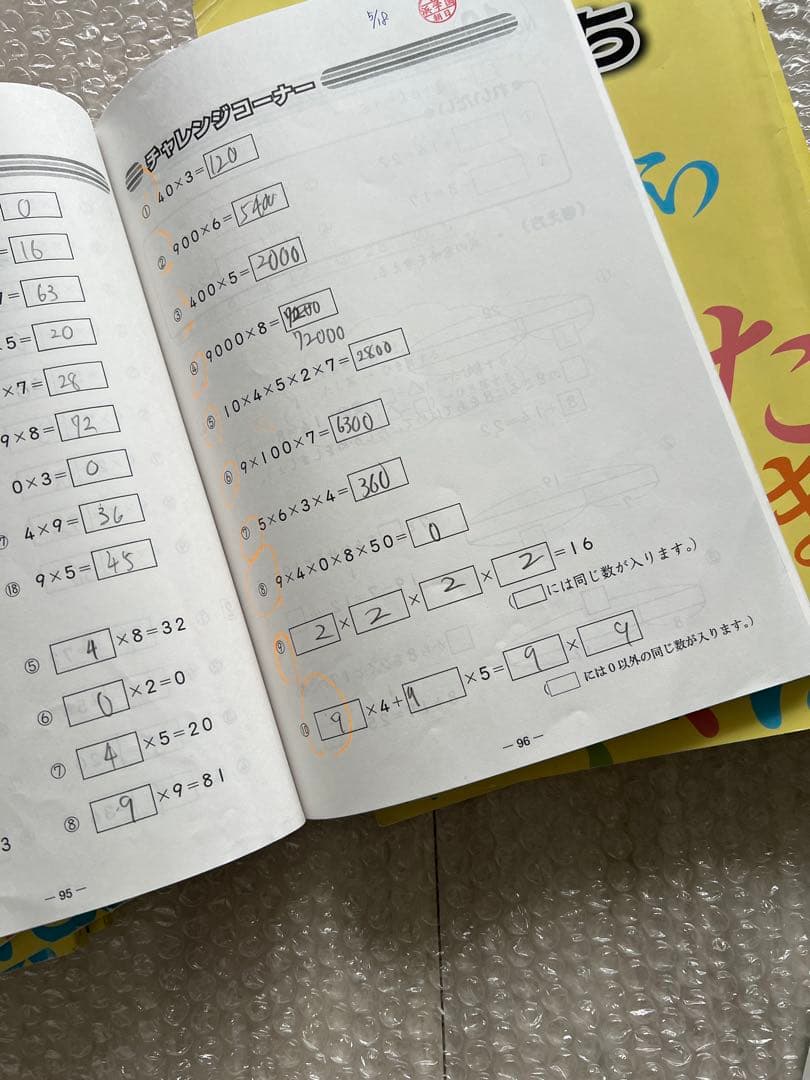 0
=16
=63
×5=20
×7=28
9×8=72
0×3=0
4×9=36
⑱ 9×5=45
⑤ 4×8=32
⑥ 0×2=0
⑦ 4×5=20
⑧ 9×9=81
3
—95—
5/18
チャレンジコーナー
① 40×3=120
② 900×6=5400
③ 400×5=2000
④ 9000×8=
72000
⑤ 10×4×5×2×7=2800
⑥ 9×100×7=6300
⑦ 5×6×3×4=360
⑧ 9×4×0×8×50=0
⑨ 2×2×2×2=16
(□には同じ数が入ります。)
⑩ 9×4+9×5=9×9
(□には0以外の同じ数が入ります。)
—96—
ち
た